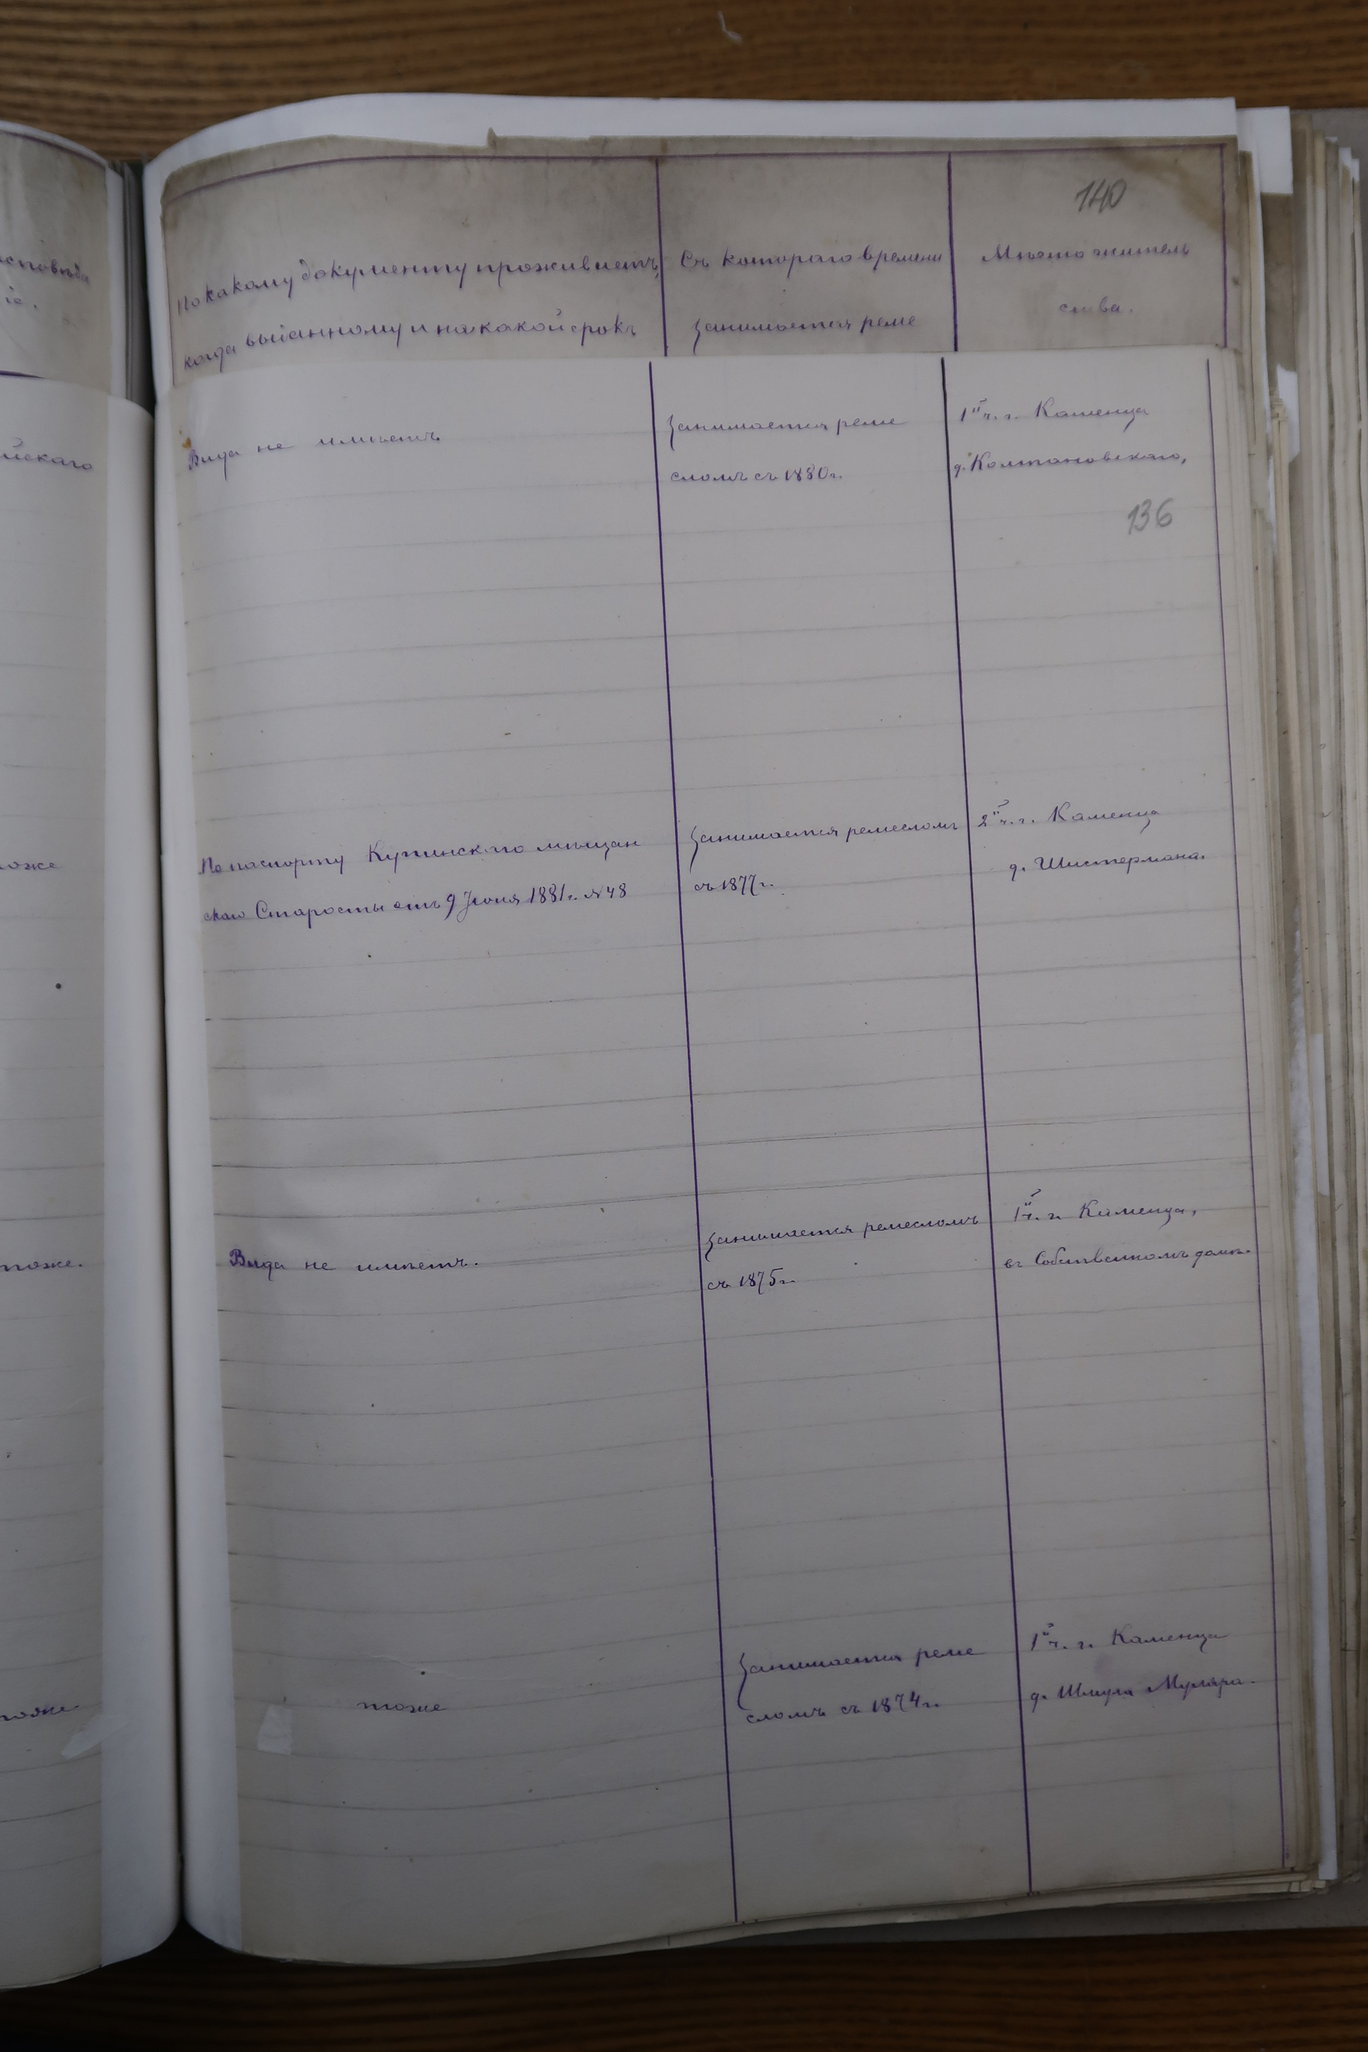 140
По какому документу проживаетъ,
когда выданному и на какой срокъ
Съ котораго времени
занимается реме
Мѣсто житель
ства.
Вида не имѣетъ
Занимается реме
сломъ съ 1880 г.
1й ч. г. Каменца
д. Колтановскаго,
136
По паспорту Купинскаго мѣщан
скаго Старосты отъ 9 Іюня 1881 г. № 48
Занимается ремесломъ
съ 1877 г.
2й ч. г. Каменца
д. Шистермана.
Вида не имѣетъ.
Занимается ремесломъ
съ 1875 г.
1й ч. г. Каменца,
въ Собственномъ домѣ.
тоже
Занимается реме
сломъ съ 1874 г.
1й ч. г. Каменца
д. Шмуля Муляра.
йскаго
тоже
тоже.
тоже